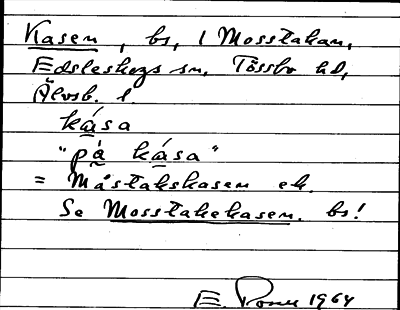 Kasen, bs, i Mosstakan,
Edsleskogs sn, Tössbo hd,
Älvsb. l.
kása
"på kása"
= Måstakskasen ek.
Se Mosstakekasen. bs!
E. 1964